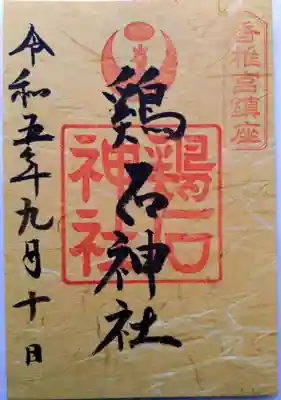 香椎宮鎮座
鶏石神社
鶏石神社
令和五年九月十日